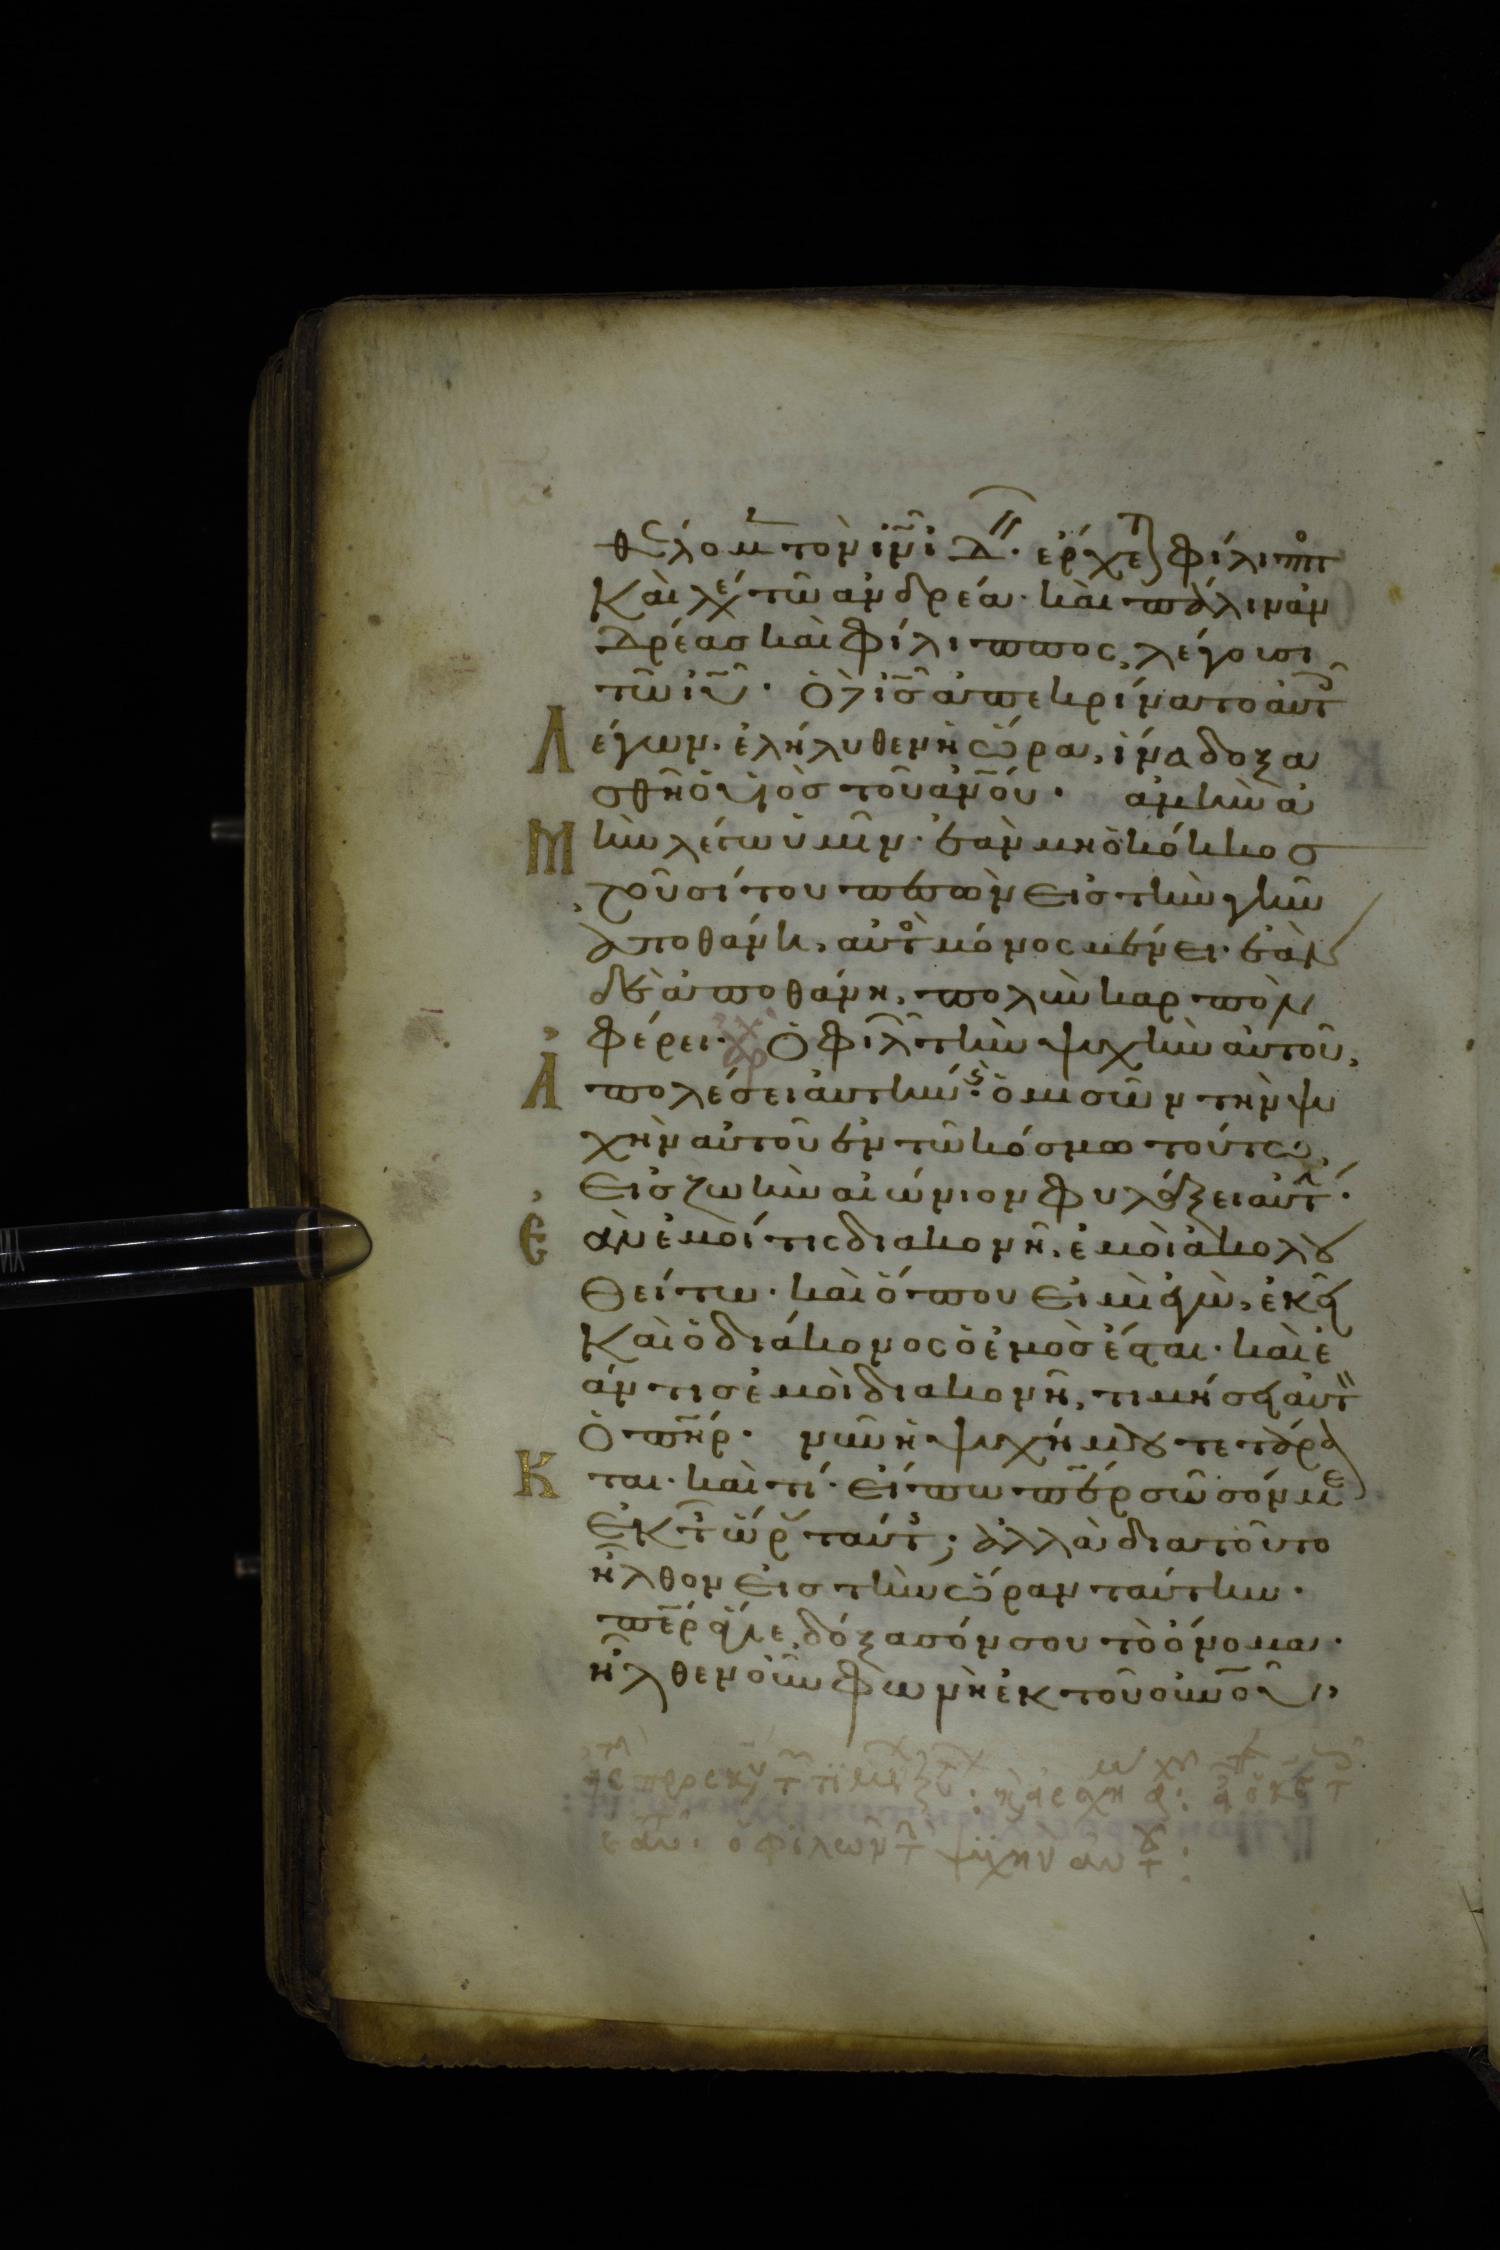 θέλομεν τὸν ἰν̅ ἰδεῖν· ἔρχεται φίλιππος
Καὶ λέγει τῶ ἀνδρέα· καὶ πάλιν ἀν
δρέας καὶ φίλιππος, λέγουσι
τῶ ἰυ̅· Ὁ δὲ ἰς̅ ἀπεκρίνατο αὐτοῖς
Λέγων· ἐλήλυθεν ἡ ὥρα, ἵνα δοξα
σθῆ ὁ υἱὸς τοῦ ἀνο̅υ· ἀμὴν ἀ
Μὴν λέγω ὑμῖν· ἐὰν μὴ ὁ κόκκος
τοῦ σίτου πεσὼν εἰς τὴν γῆν
ἀποθάνη, αὐτὸς μόνος μένει· ἐὰν
δὲ ἀποθάνη, πολὺν καρπὸν
φέρει· Ὁ φιλῶν τὴν ψυχὴν αὐτοῦ,
Ἀπολέσει αὐτήν· καὶ ὁ μισῶν τὴν ψυ
χὴν αὐτοῦ ἐν τῶ κόσμω τούτω,
Εἰς ζωὴν αἰώνιον φυλάξει αὐτήν·
Ἐὰν ἐμοί τις διακονῆ, ἐμοὶ ἀκολου
θείτω· καὶ ὅπου εἰμὶ ἐγὼ, ἐκεῖ
Καὶ ὁ διάκονος ὁ ἐμὸς ἔσται· καὶ ἐ
άν τις ἐμοὶ διακονῆ, τιμήσει αὐτὸν
Ὁ πη̅ρ· νῦν ἡ ψυχή μου τετάρα
Κται· καὶ τί εἴπω πε̅ρ σῶσόν με
Ἐκ τῆς ὥρας ταύτης; ἀλλὰ διατοῦτο
ἦλθον εἰς τὴν ὥραν ταύτην·
πε̅ρ ἅγιε, δόξασόν σου τὸ ὄνομα·
ἦλθεν οὖν φωνὴ ἐκ τοῦ οὐνο̅υ
ὁ φιλῶν τ ψυχην αυτου: